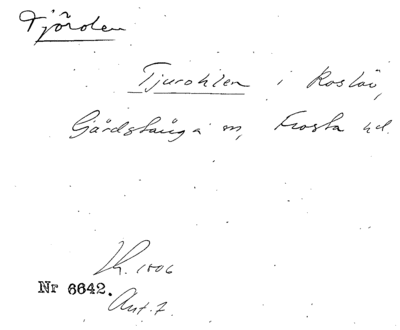 Tjörden
Tjurahlen i Roslöv,
Gårdstånga sn, Frosta hd.
Lh. 1806
Nr 6642.
Ant. 7.